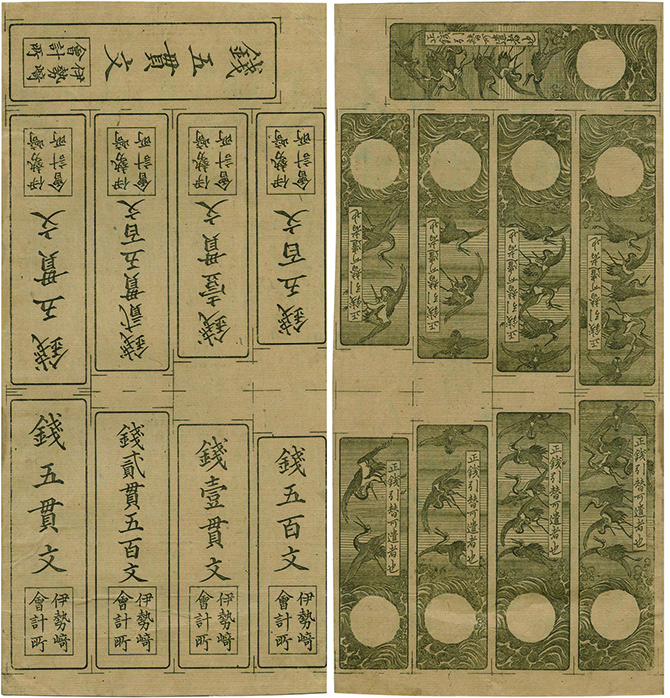 錢五貫文
伊勢﨑
會計所
錢五百文
伊勢﨑
會計所
錢壹貫文
伊勢﨑
會計所
錢貳貫五百文
伊勢﨑
會計所
錢五貫文
伊勢﨑
會計所
錢五百文
伊勢﨑
會計所
錢壹貫文
伊勢﨑
會計所
錢貳貫五百文
伊勢﨑
會計所
錢五貫文
伊勢﨑
會計所
正錢引替可遣者也
正錢引替可遣者也
正錢引替可遣者也
正錢引替可遣者也
正錢引替可遣者也
正錢引替可遣者也
正錢引替可遣者也
正錢引替可遣者也
正錢引替可遣者也